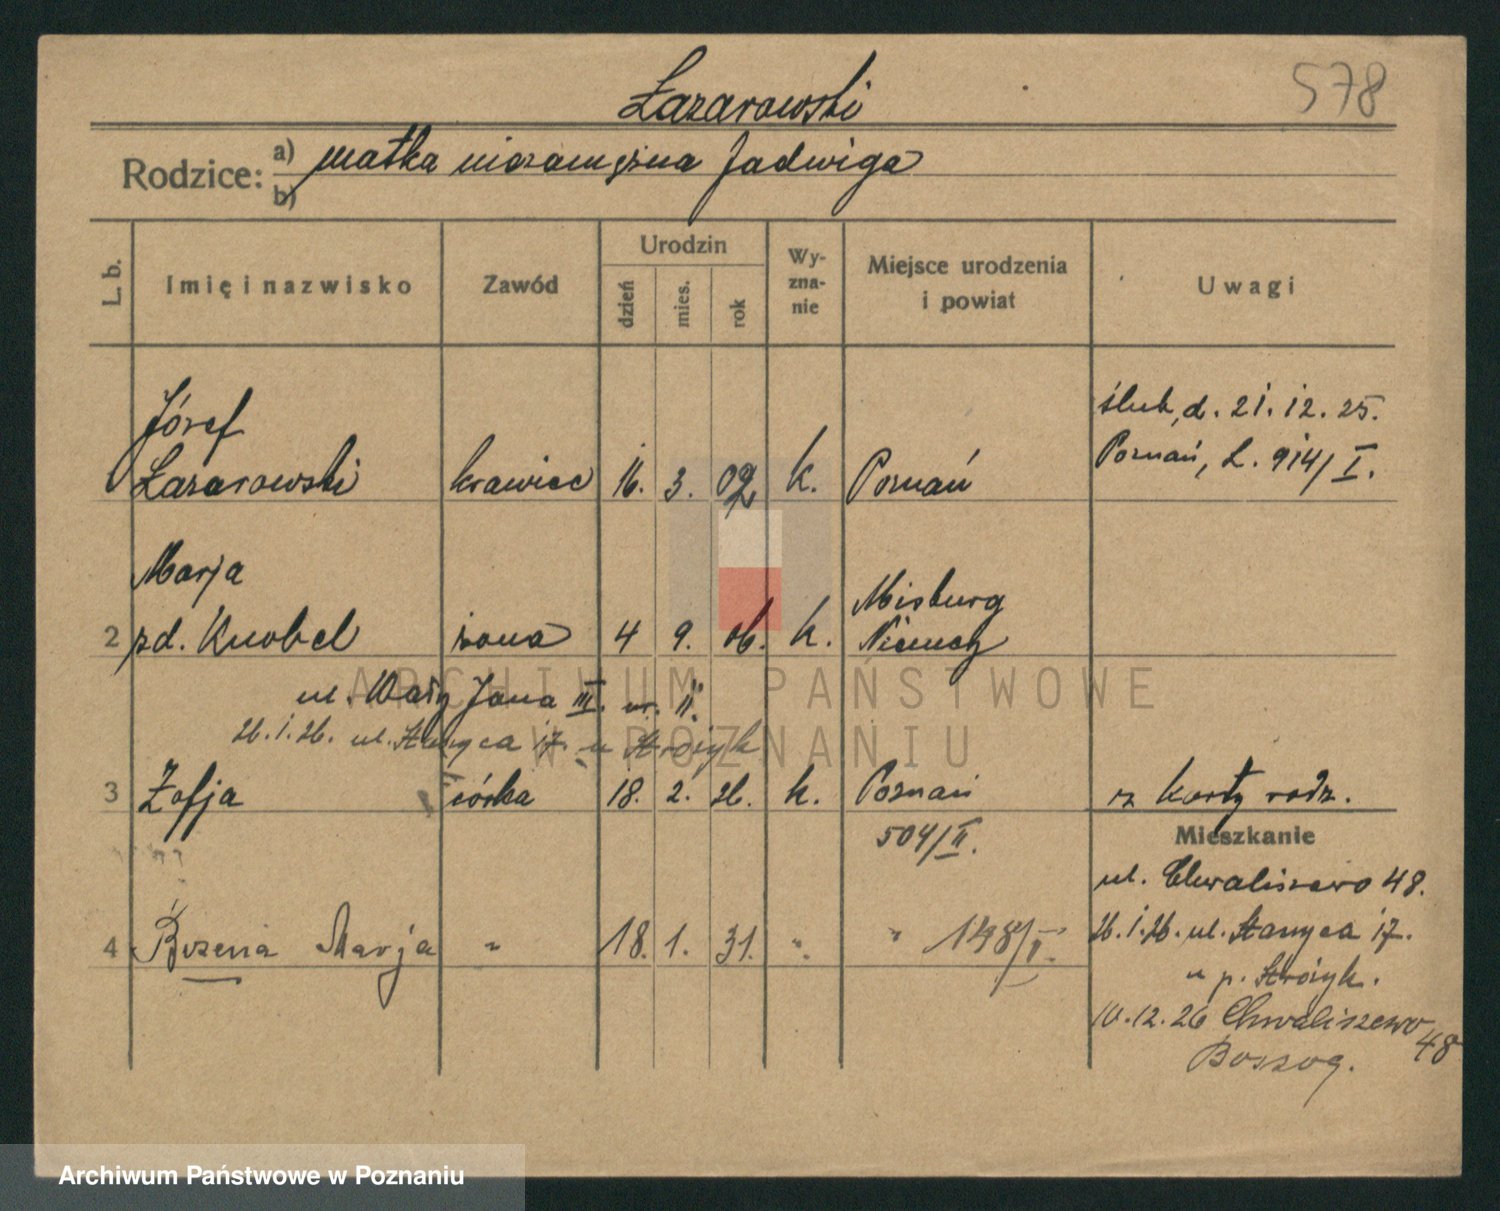 578
Łazarowski
Rodzice: a) matka niezamężna Jadwiga
b)
L. b.
Imię i nazwisko
Zawód
Urodzin
dzień
mies.
rok
Wy-
zna-
nie
Miejsce urodzenia
i powiat
Uwagi
Józef
Łazarowski krawiec 16. 3. 02 k. Poznań
ślub, d. 21.12.25.
Poznań, L. 914/I.
Marja
2 zd. Knobel żona 4 9. 06. k. Misburg
Niemcy
ul. Jana III. nr. 11.
26.1.26. ul. 17. u Stróżyk
3 Zofja córka 18. 2. 26. k. Poznań z karty rodz.
504/II.
Mieszkanie
ul. Chwaliszewo 48.
4 Bożena Marja " 18. 1. 31. " " 148/II.
26.1.26. ul. 17.
u p. Stróżyk.
10.12.26 Chwaliszewo 48
ARCHIWUM PAŃSTWOWE
W POZNANIU
Archiwum Państwowe w Poznaniu